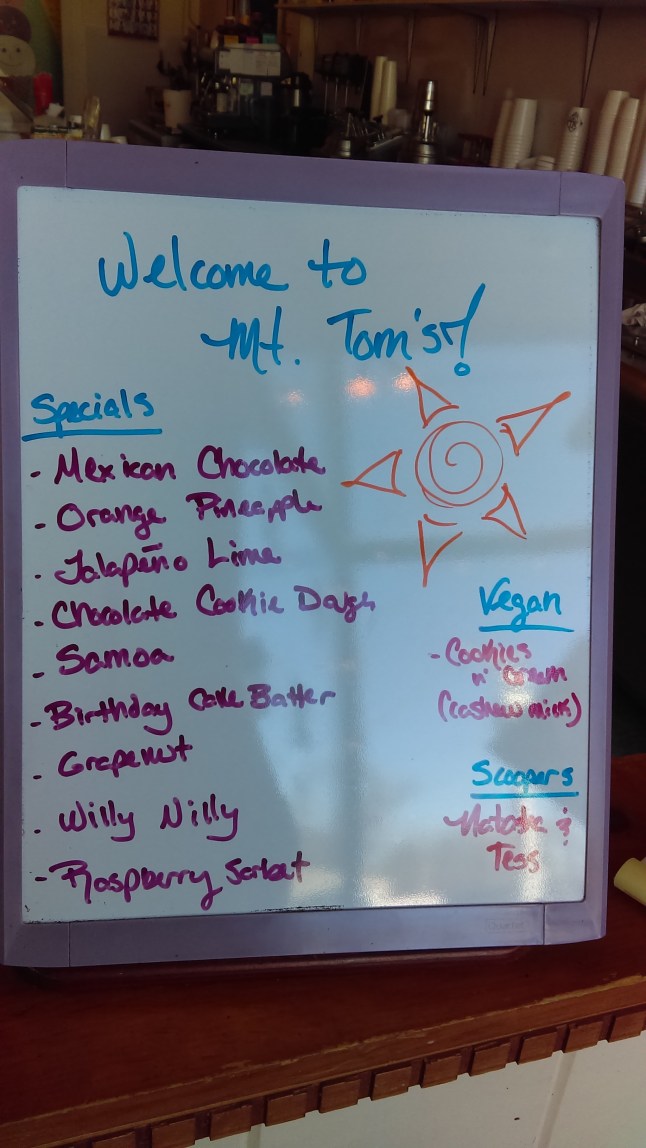 Welcome to
Mt. Tom's!
Specials
- Mexican Chocolate
- Orange Pineapple
- Jalapeño Lime
- Chocolate Cookie Dough
- Samoa
- Birthday Cake Batter
- Grapenut
- Willy Nilly
- Raspberry Sorbet
Vegan
- Cookies
n' Cream
(cashew milk)
Scoopers
Natasha &
Tess